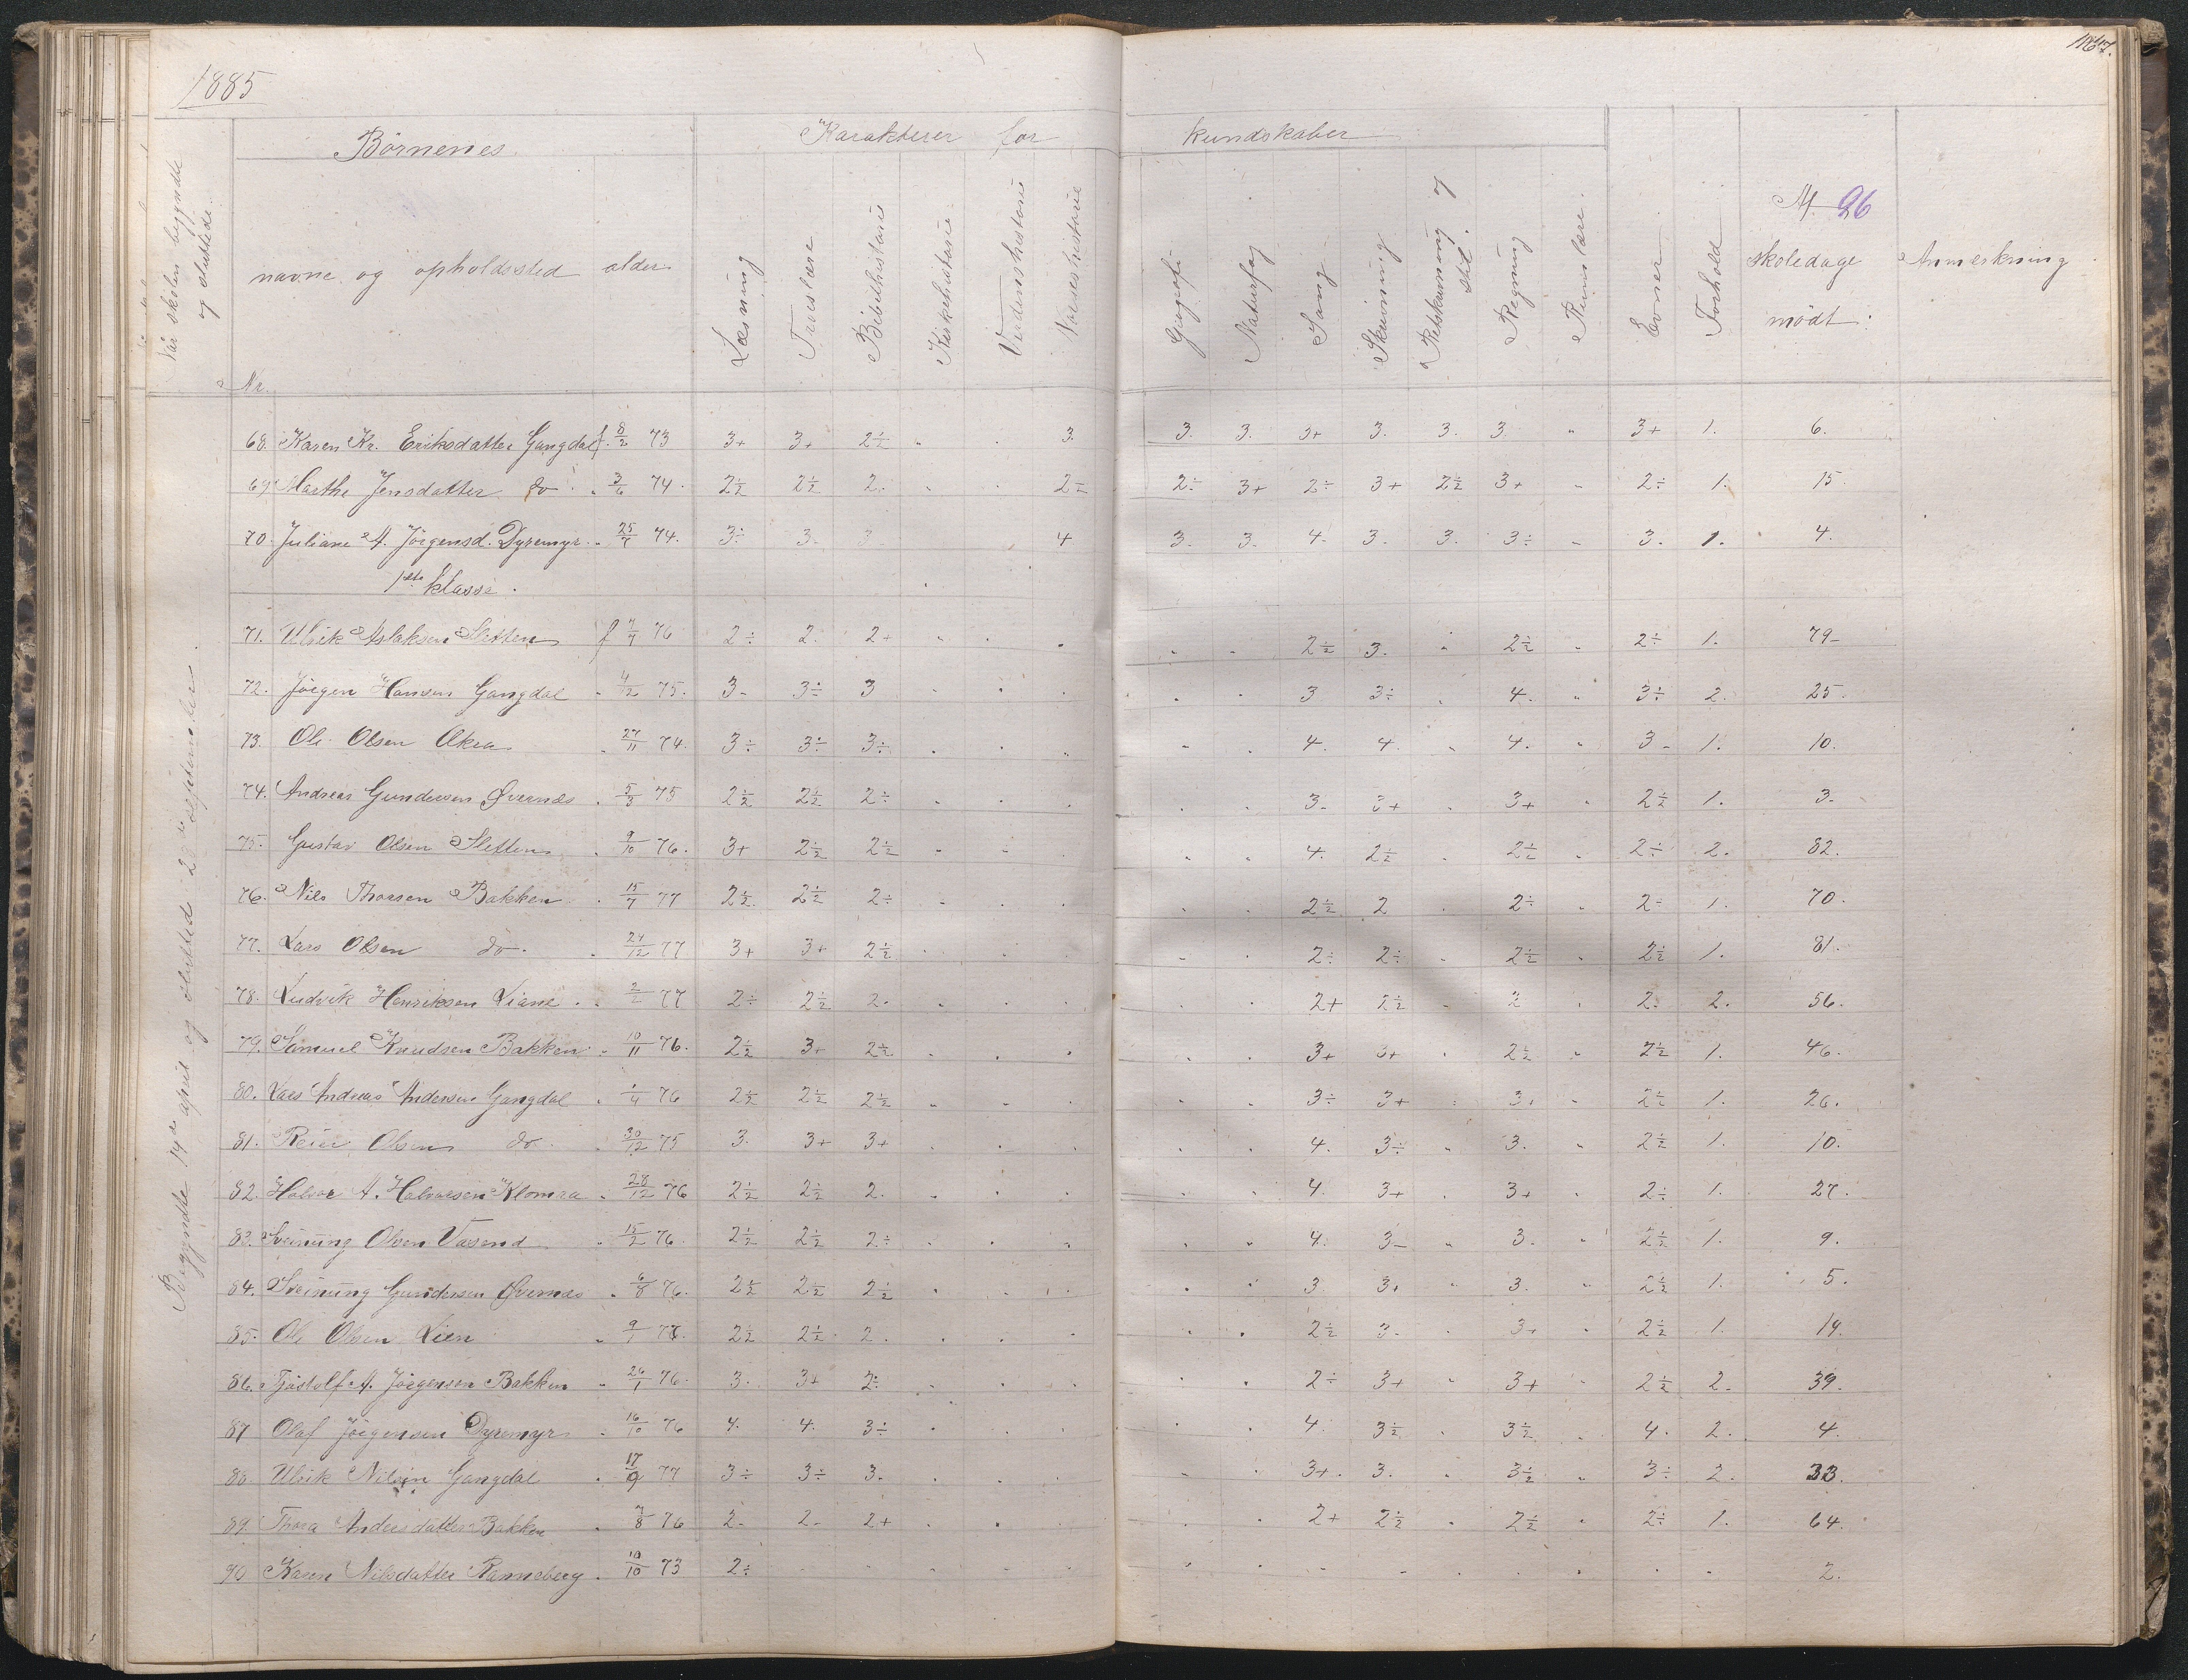 1885
167.
Når skolen begyndte og sluttede.
Børnenes
Karakterer for
kundskaber
Nr.
navne og opholdssted
alder
Læsning
Troeslære
Bibelhistorie
Kirkehistorie
Verdenshistorie
Norgeshistorie
Geografi
Naturfag
Sang
Skrivning
Retskrivning og stil.
Regning
Rumlære.
Evner
Forhold
Af 96 skoledage mødt.
Anmerkning
Begyndte 14de april og sluttede september.
68. Karen Kr. Eriksdatter Gangdal f. 8/2 73 3+ 3+ 2½ " . 3. 3. 3. 3+ 3. 3. 3 " 3+ 1. 6.
69. Marthe Jensdatter do " 3/6 74. 2½ 2½ 2. " . 2÷ 2÷ 3+ 2÷ 3+ 2½ 3+ " 2÷ 1. 15.
70. Juliane A. Jörgensd. Dyremyr " 25/7 74. 3÷ 3. 3. 4 3. 3. 4. 3. 3. 3÷ " 3. 1. 4.
1ste klasse.
71. Ulrik Aslaksen Sletten f 7/7 76 2÷ 2. 2+ " . . " " 2½ 3. " 2½ " 2÷ 1. 79.
72. Jörgen Hansen Gangdal " 4/2 75. 3. 3÷ 3 " . . " " 3 3÷ " 4. " 3÷ 2. 25.
73. Ole Olsen Akra " 27/11 74. 3÷ 3÷ 3÷ " . " " " 4. 4. " 4. " 3. 1. 10.
74. Andreas Gundersen Øvernæs " 5/3 75 2½ 2½ 2÷ " . . " " 3. 3+ " 3+ " 2½ 1. 3.
75. Gustav Olsen Sletten " 9/10 76. 3+ 2½ 2½ " " . " " 4. 2½ " 2½ " 2÷ 2. 82.
76. Nils Thorsen Bakken " 15/7 77 2½ 2½ 2÷ " . . " " 2½ 2 " 2÷ " 2÷ 1. 70.
77. Lars Olsen do " 24/12 77 3+ 3+ 2½ " . . " " 2÷ 2÷ " 2½ " 2½ 1. 81.
78. Ludvik Henriksen Liane " 2/2 77 2÷ 2½ 2. " . . " " 2+ 2½ " 2 " 2. 2. 56.
79. Samuel Knudsen Bakken " 10/11 76. 2½ 3+ 2½ " . . " " 3+ 3+ " 2½ " 2½ 1. 46.
80. Lars Andreas Andersen Gangdal " 1/4 76 2½ 2½ 2½ " " . " " 3÷ 3+ " 3+ " 2½ 1. 26.
81. Reier Olsen do " 30/12 75 3. 3+ 3+ " . . " " 4. 3÷ " 3. " 2½ 1. 10.
82. Halvor A. Halvorsen Klomra " 28/12 76 2½ 2½ 2. " . . " " 4. 3+ " 3+ " 2÷ 1. 27.
83. Sveinung Olsen Vasend " 15/2 76. 2½ 2½ 2÷ " . " " " 4. 3. " 3. " 2½ 1. 9.
84. Sveinung Gundersen Øvernæs " 6/8 76. 2½ 2½ 2½ " . . " " 3 3+ " 3. " 2½ 1. 5.
85. Ole Olsen Lien " 9/1 78. 2½ 2½ 2. " . . " " 2½ 3. " 3+ " 2½ 1. 14.
86. Tjöstolf A. Jörgensen Bakken " 26/1 76. 3. 3+ 2÷ " . . " " 2÷ 3+ " 3+ " 2½ 2. 39.
87 Olaf Jörgensen Dyremyr " 16/10 76 4. 4. 3÷ " . . " " 4. 3½ " 3½ " 4. 2. 4.
88 Ulrik Nilsen Gangdal " 17/9 77 3÷ 3÷ 3. " . . " " 3+ 3. " 3½ " 3÷ 2. 33.
89 Thora Andersdatter Bakken " 7/8 76 2. 2. 2+ " . . " " 2+ 2½ " 2½ " 2÷ 1. 64.
90 Karen Nilsdatter Ranneberg " 10/10 73 2÷ " " " " " " " " " " " " " " 2.